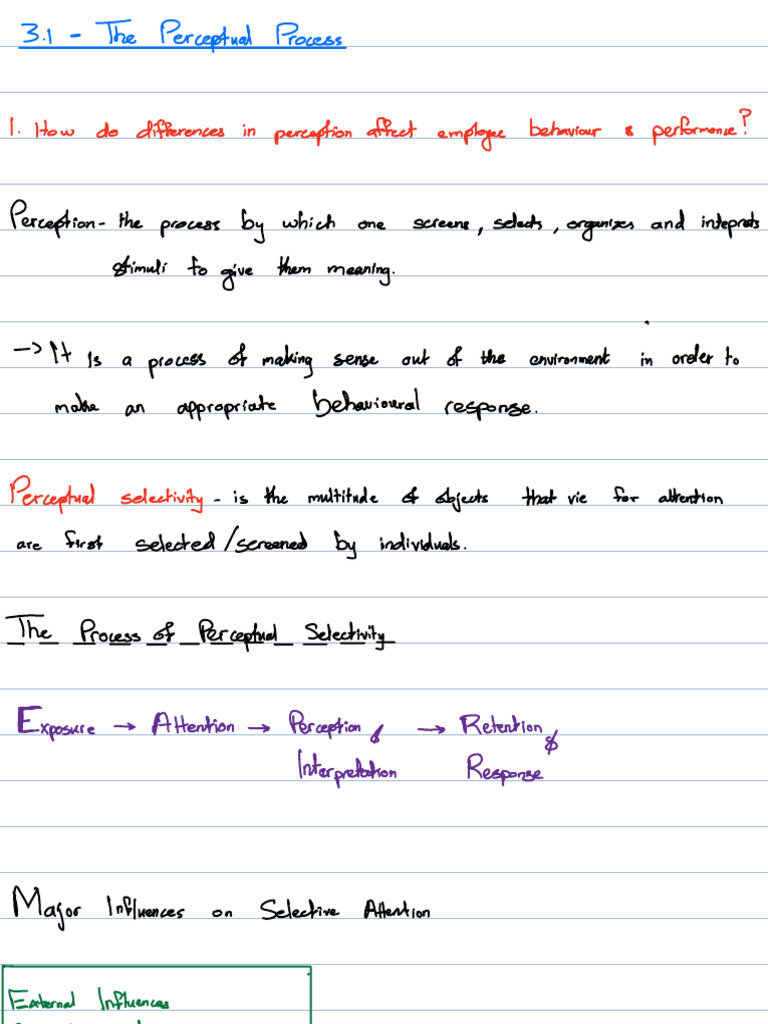 3.1 - The Perceptual Process
1. How do differences in perception affect employee behaviour & performance?
Perception - the process by which one screens, selects, organizes and inteprets
stimuli to give them meaning.
-> It is a process of making sense out of the environment in order to
make an appropriate behavioural response.
Perceptual selectivity - is the multitude of objects that vie for attention
are first selected/screened by individuals.
The Process of Perceptual Selectivity
Exposure → Attention → Perception & → Retention &
Interpretation Response
Major Influences on Selective Attention
External Influences